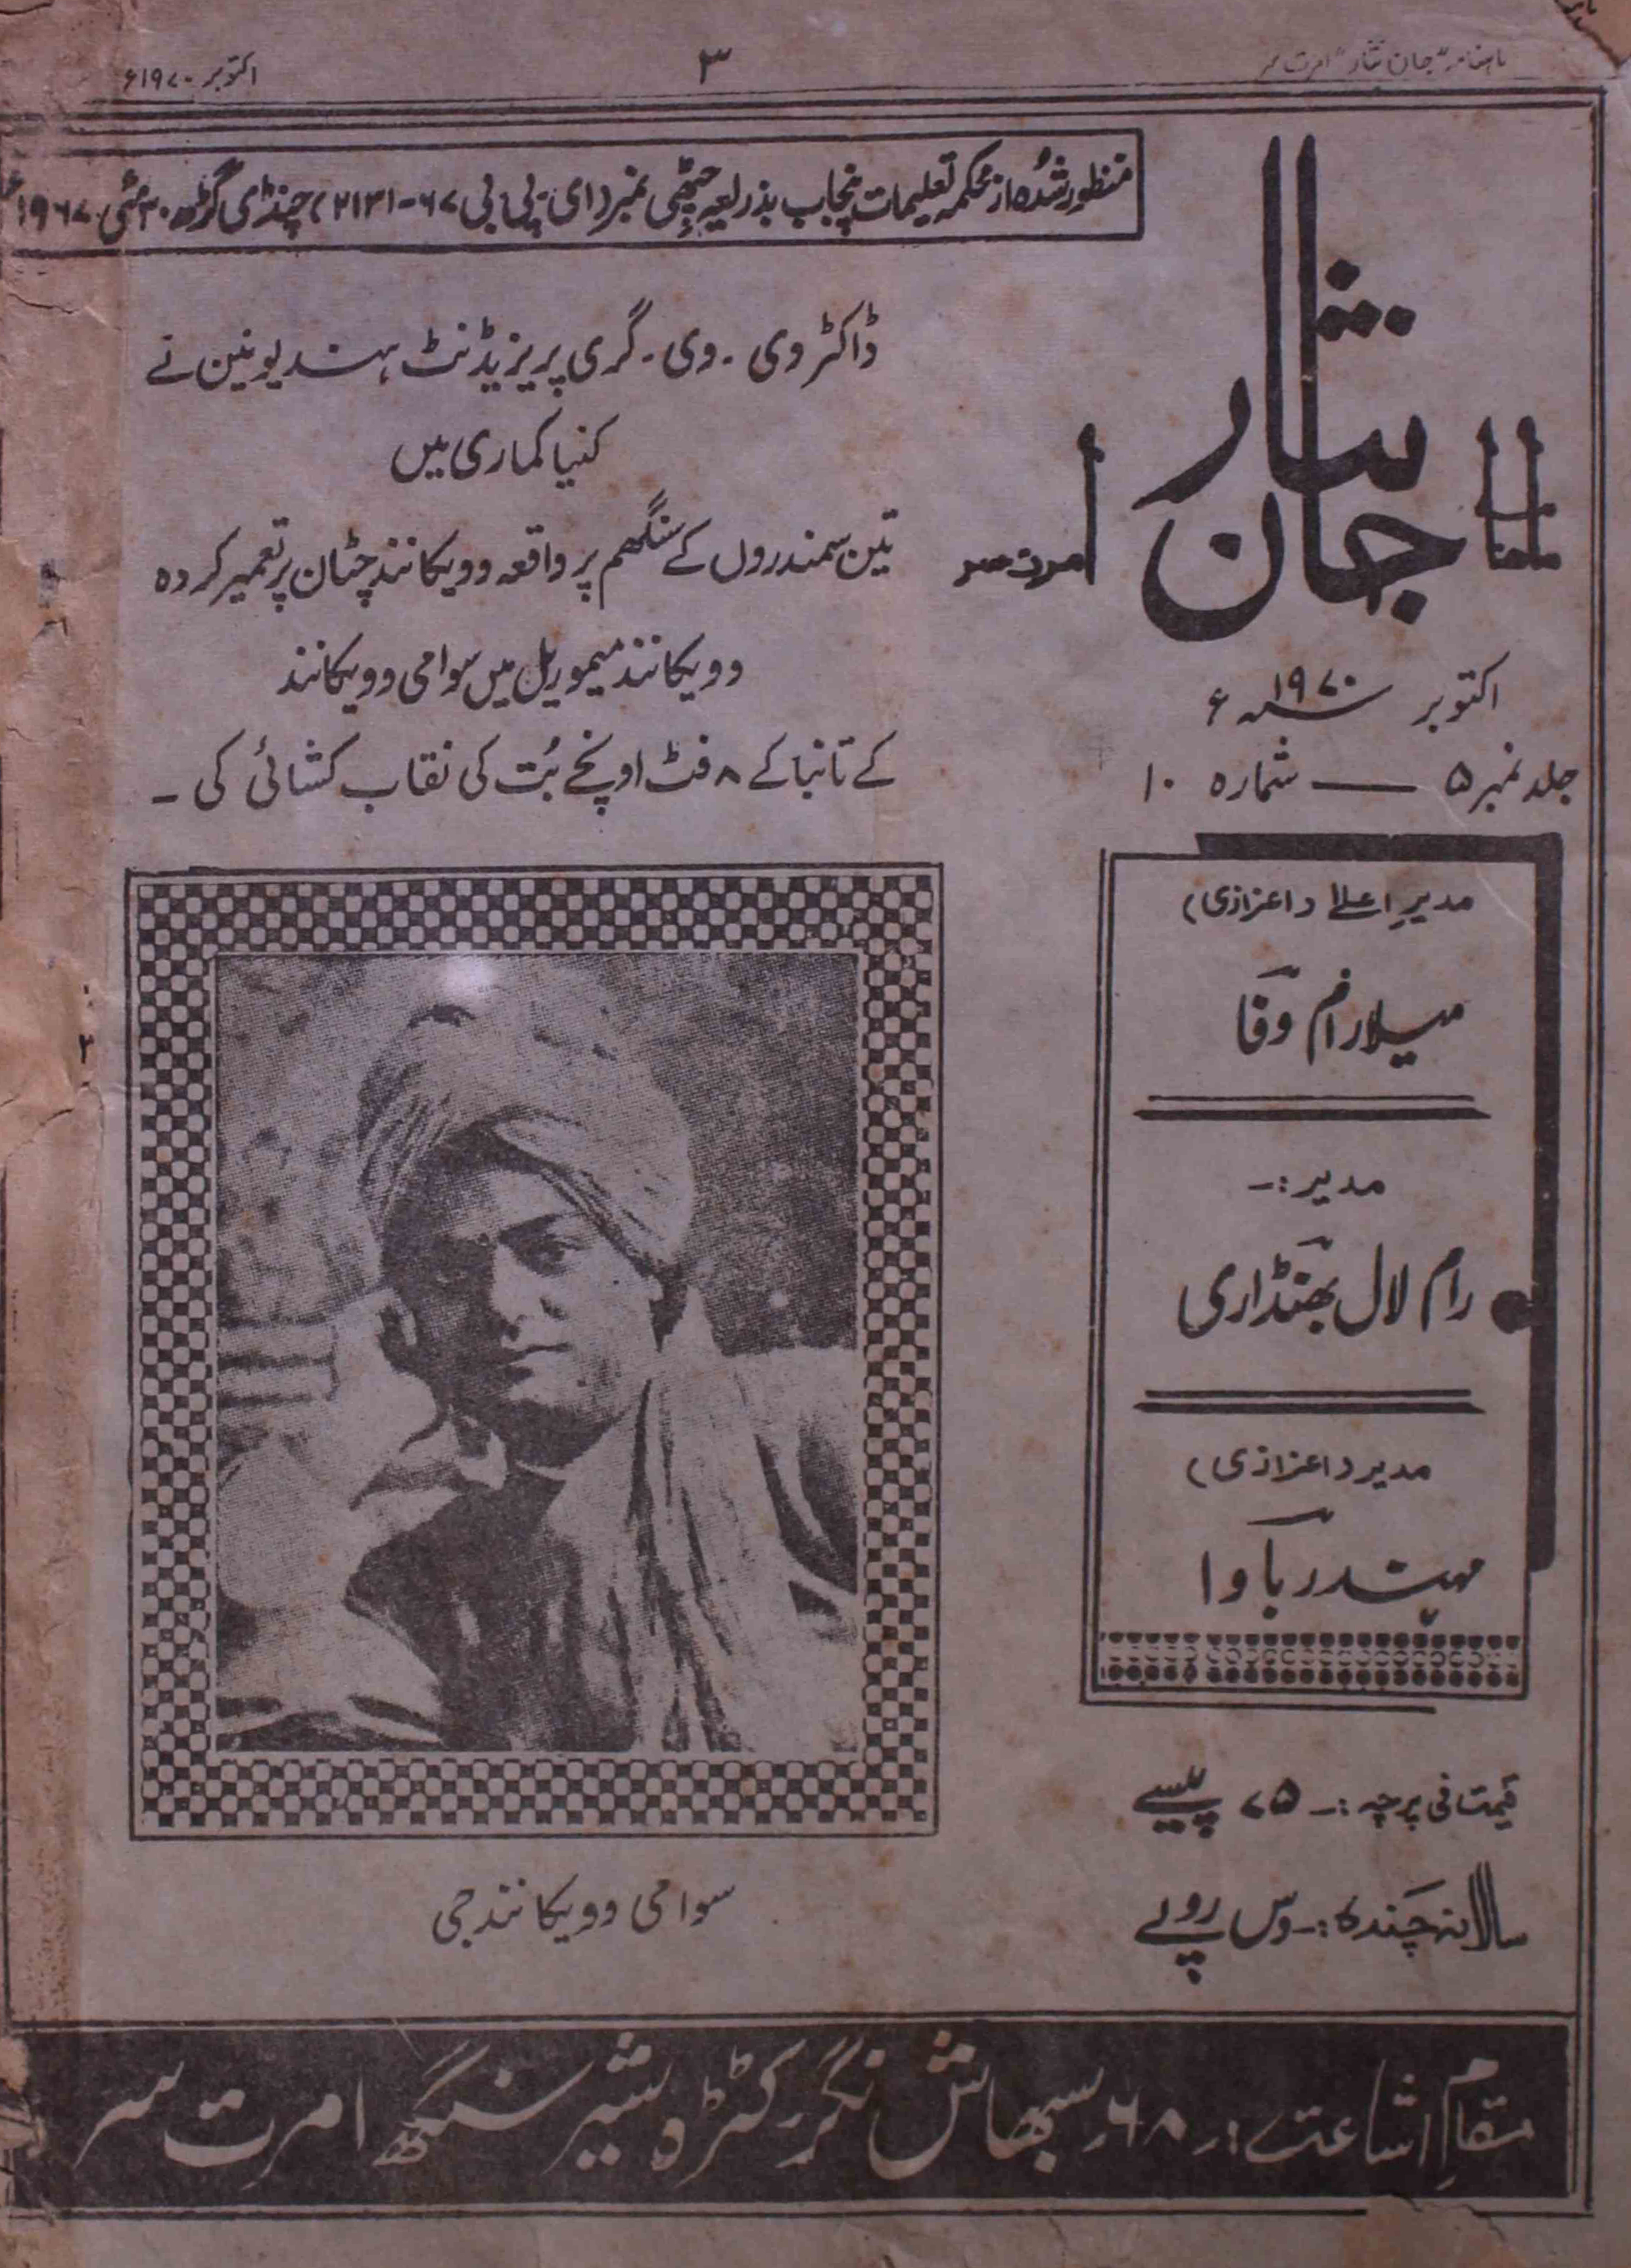 ماہنامہ "جان نثار" امرت سر
۳
اکتوبر ۱۹۷۰ء
منظور شدہ از محکمہ تعلیمات پنجاب بذریعہ چٹھی نمبر (ای۔پی بی ۶۷-۲۱۳۱) چنڈی گڑھ ۳۰ مئی ۱۹۶۷ء
ماہنامہ جان نثار امرت سر
اکتوبر ۱۹۷۰ء
جلد نمبر ۵ — شمارہ ۱۰
ڈاکٹر وی ۔ وی ۔ گری پریزیڈنٹ ہند یونین نے
کنیا کماری میں
تین سمندروں کے سنگھم پر واقعہ وویکانند چٹان پر تعمیر کردہ
وویکانند میموریل میں سوامی وویکانند
کے تانبا کے ۸ فٹ اونچے بُت کی نقاب کشائی کی ۔
مدیرِ اعلےٰ (اعزازی)
میلا رام وفا
مدیر :۔
رام لال بھنڈاری
مدیر (اعزازی)
مہندر باوا
قیمت فی پرچہ :۔ ۷۵ پیسے
سالانہ چندہ :۔ دس روپے
سوامی وویکانند جی
مقامِ اشاعت :۔ ۶۸ سبھاش نگر کٹرہ شیر سنگھ امرت سر